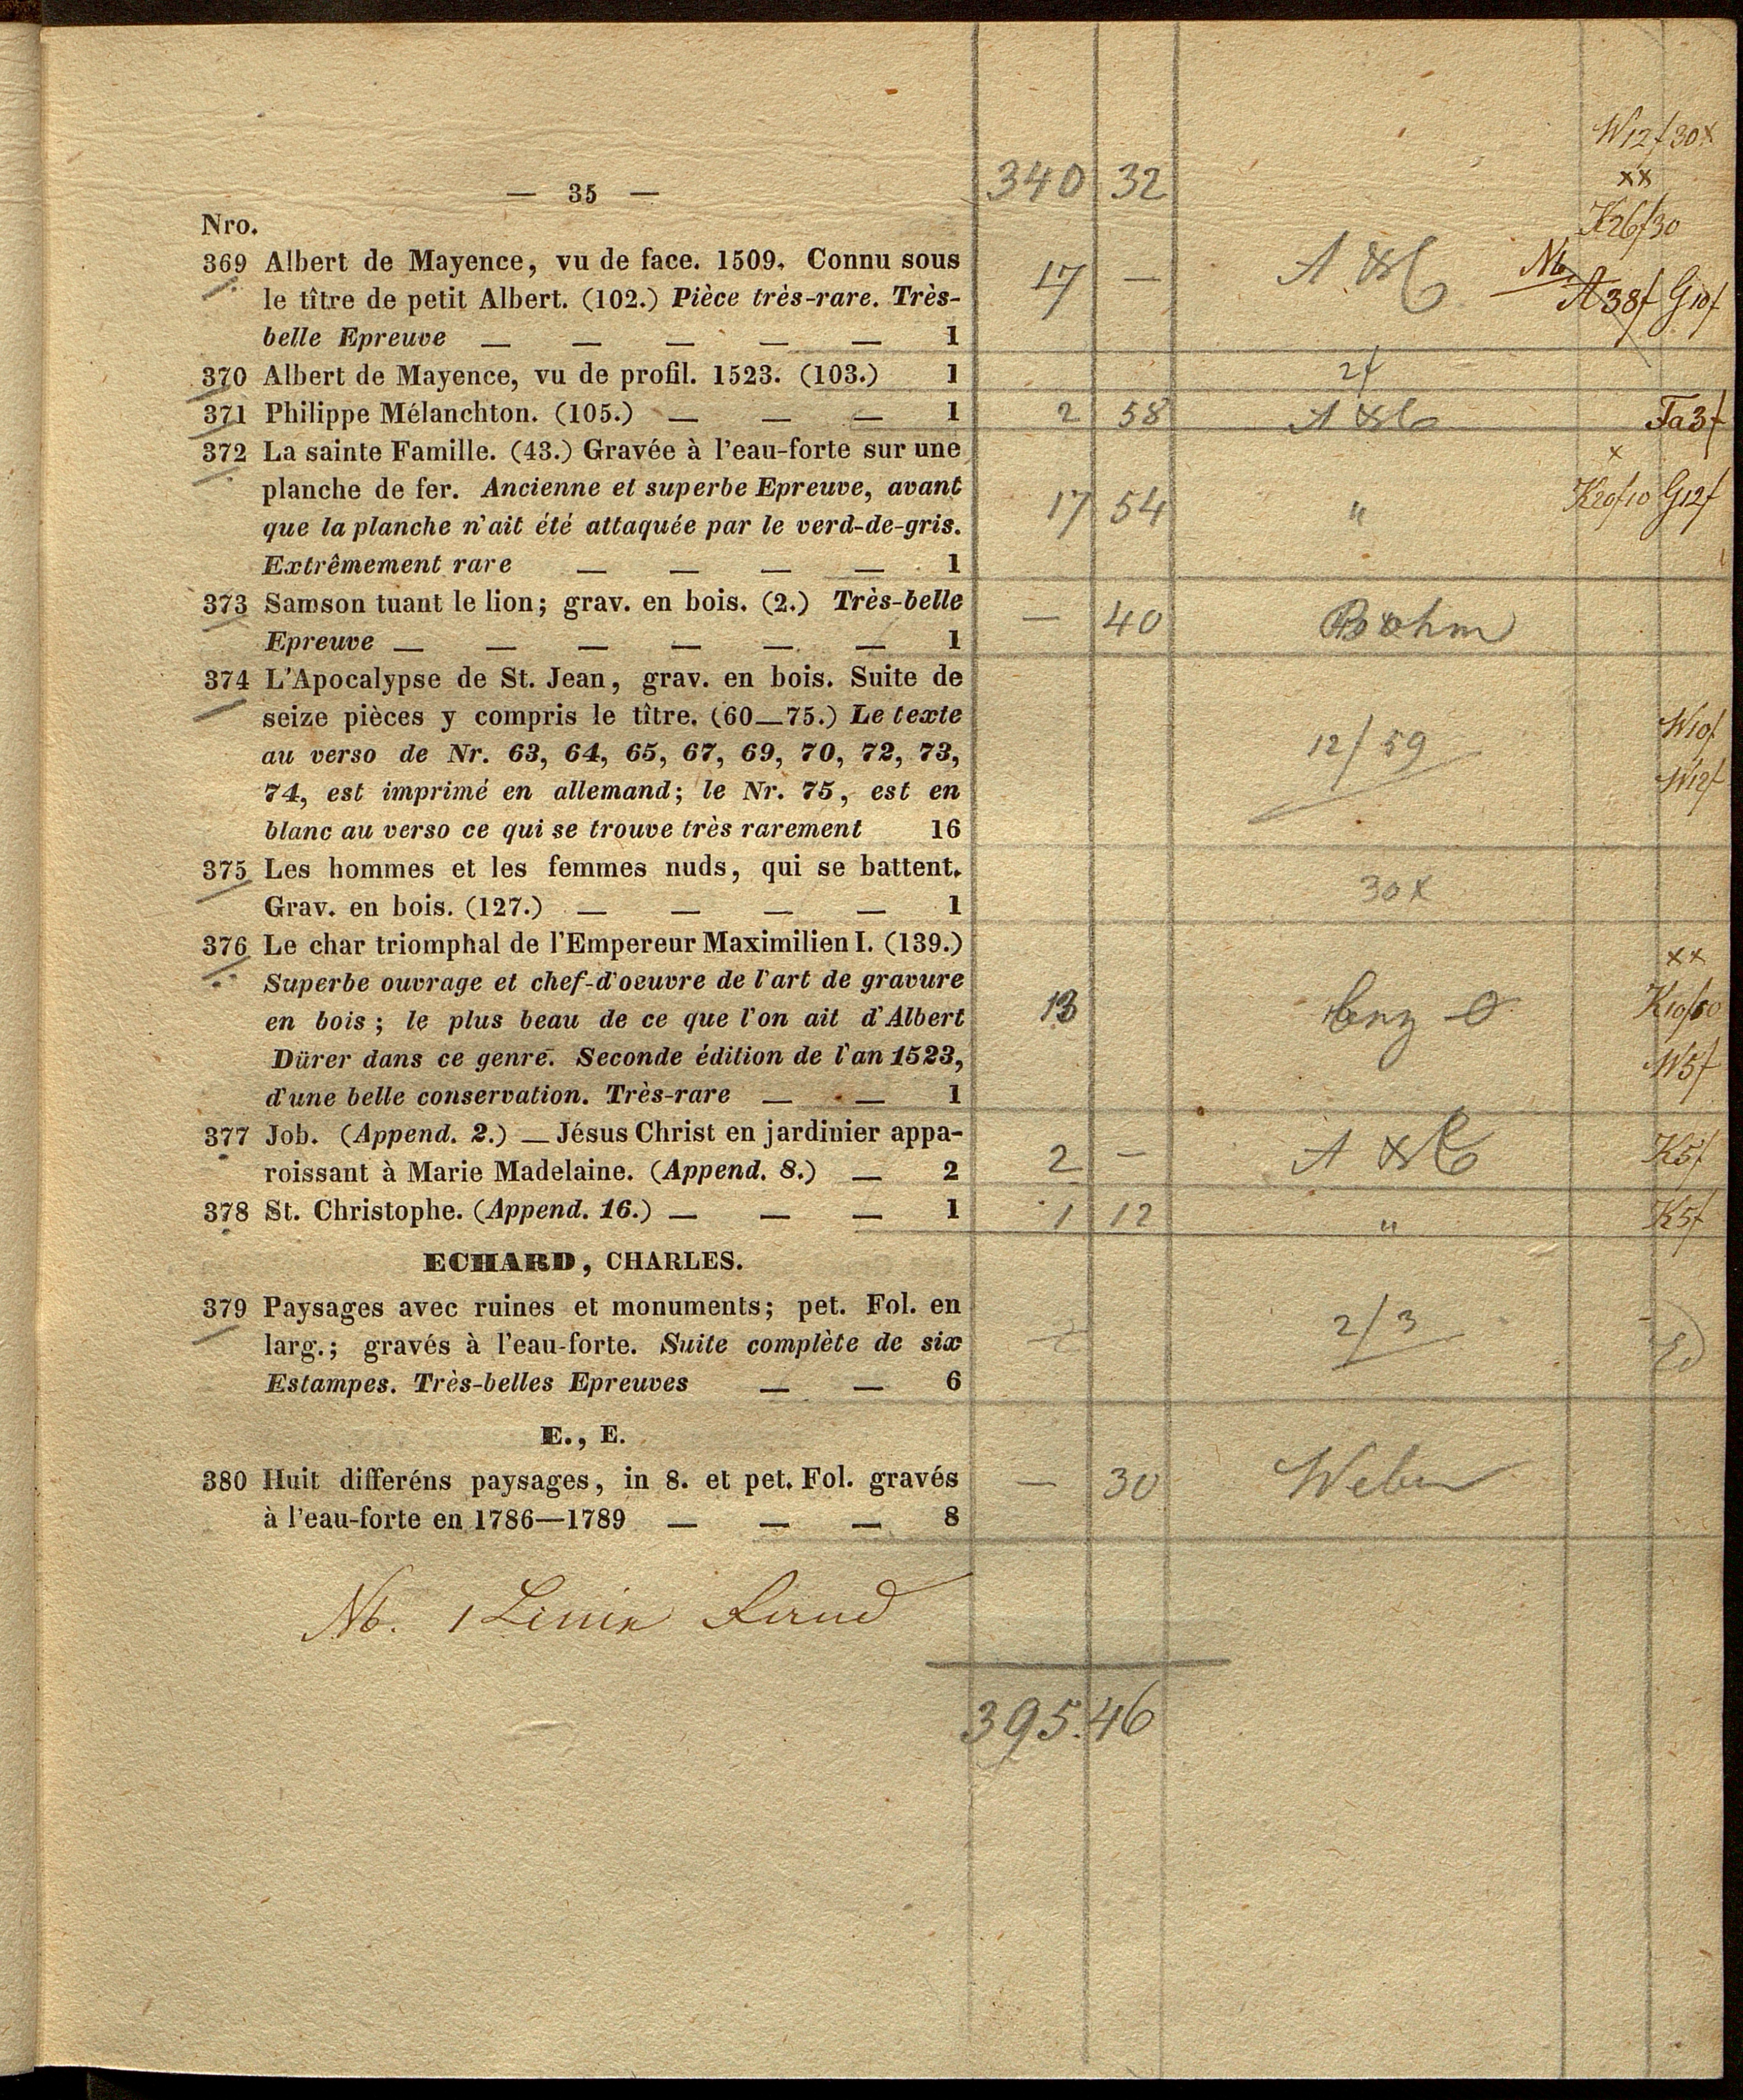 — 35 —
340 32
W12f30x
xx
K26f30
Nro.
369 Albert de Mayence, vu de face. 1509. Connu sous
le tître de petit Albert. (102.) Pièce très-rare. Très-
belle Epreuve — — — — — 1
17 —
Nb
A38f G10f
370 Albert de Mayence, vu de profil. 1523. (103.) 1
2f
371 Philippe Mélanchton. (105.) — — — 1
2 58
Ta3f
372 La sainte Famille. (43.) Gravée à l'eau-forte sur une
planche de fer. Ancienne et superbe Epreuve, avant
que la planche n'ait été attaquée par le verd-de-gris.
Extrêmement rare — — — — 1
17 54 "
x
K20f10 G12f
373 Samson tuant le lion; grav. en bois. (2.) Très-belle
Epreuve — — — — — — 1
— 40 Böhm
374 L'Apocalypse de St. Jean, grav. en bois. Suite de
seize pièces y compris le tître. (60—75.) Le texte
au verso de Nr. 63, 64, 65, 67, 69, 70, 72, 73,
74, est imprimé en allemand; le Nr. 75, est en
blanc au verso ce qui se trouve très rarement 16
12/59
W10f
W12f
375 Les hommes et les femmes nuds, qui se battent.
Grav. en bois. (127.) — — — — 1
30x
376 Le char triomphal de l'Empereur Maximilien I. (139.)
Superbe ouvrage et chef-d'oeuvre de l'art de gravure
en bois; le plus beau de ce que l'on ait d'Albert
Dürer dans ce genre. Seconde édition de l'an 1523,
d'une belle conservation. Très-rare — — 1
13
xx
W5f
377 Job. (Append. 2.) — Jésus Christ en jardinier appa-
roissant à Marie Madelaine. (Append. 8.) — 2
2 —
K5f
378 St. Christophe. (Append. 16.) — — — 1
1 12 "
K5f
ECHARD, CHARLES.
379 Paysages avec ruines et monuments; pet. Fol. en
larg.; gravés à l'eau-forte. Suite complète de six
Estampes. Très-belles Epreuves — — 6
2/3
E., E.
380 Huit différéns paysages, in 8. et pet. Fol. gravés
à l'eau-forte en 1786—1789 — — — 8
— 30 Weber
Nb. 1
395.46